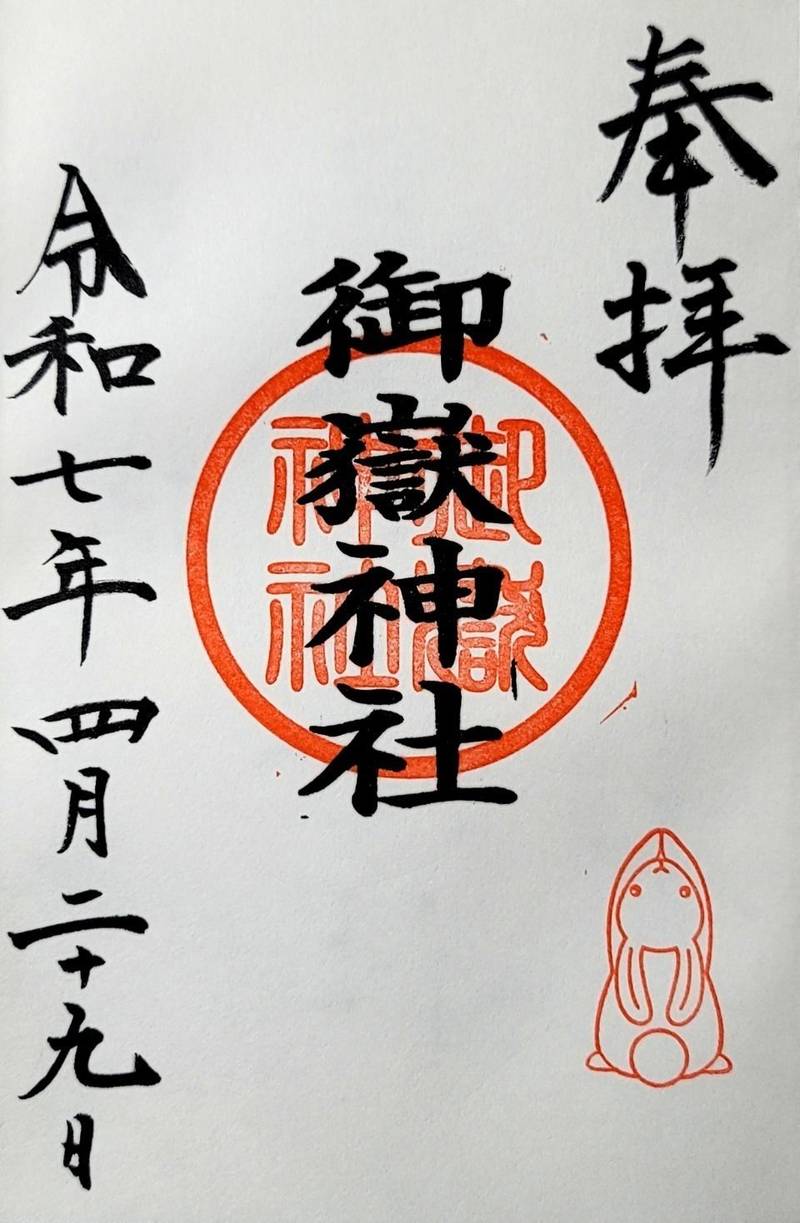 奉拝
御嶽神社
御嶽神社
令和七年四月二十九日